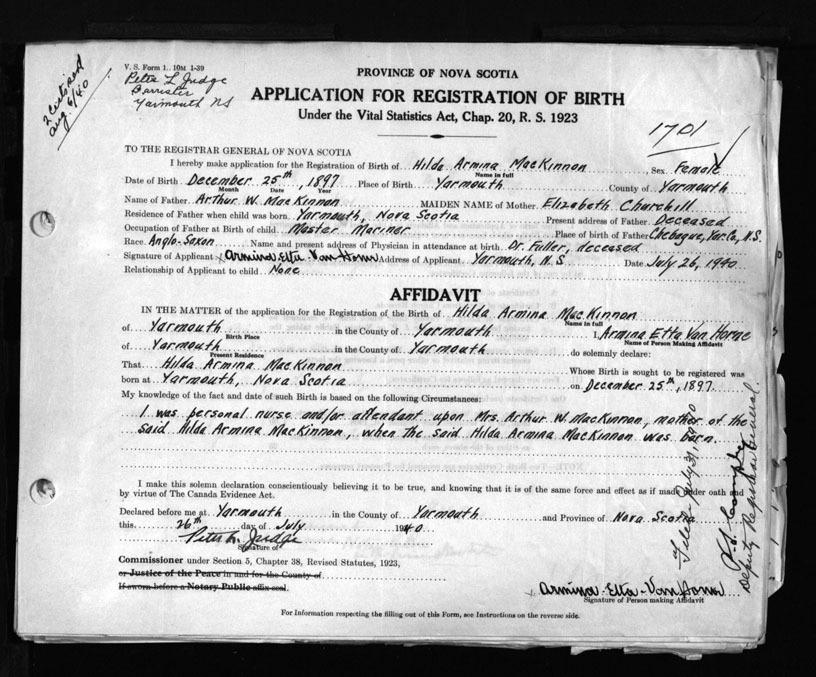 V. S. Form 1.. 10M 1-39
Peter L Judge
Barrister
Yarmouth NS
Aug. 6/40
PROVINCE OF NOVA SCOTIA
APPLICATION FOR REGISTRATION OF BIRTH
Under the Vital Statistics Act, Chap. 20, R. S. 1923
1701
TO THE REGISTRAR GENERAL OF NOVA SCOTIA
I hereby make application for the Registration of Birth of Hilda Armina MacKinnon, Sex Female
Name in full
Date of Birth December 25th, 1897 Place of Birth Yarmouth County of Yarmouth
Month Date Year
Name of Father Arthur W. MacKinnon MAIDEN NAME of Mother Elizabeth Churchill
Residence of Father when child was born Yarmouth, Nova Scotia Present address of Father Deceased
Occupation of Father at Birth of child Master Mariner Place of birth of Father Chebogue, Yar. Co., N.S.
Race Anglo-Saxon Name and present address of Physician in attendance at birth Dr. Fuller, deceased
Signature of Applicant x Armina Etta Van Horne Address of Applicant Yarmouth, N.S Date July 26, 1940
Relationship of Applicant to child None
AFFIDAVIT
IN THE MATTER of the application for the Registration of the Birth of Hilda Armina MacKinnon
Name in full
of Yarmouth in the County of Yarmouth I, Armina Etta Van Horne
Birth Place Name of Person Making Affidavit
of Yarmouth in the County of Yarmouth do solemnly declare:
Present Residence
That Hilda Armina MacKinnon Whose Birth is sought to be registered was
born at Yarmouth, Nova Scotia on December 25th, 1897
My knowledge of the fact and date of such Birth is based on the following Circumstances:
I was personal nurse and/or attendant upon Mrs. Arthur W. MacKinnon, mother of the
said Hilda Armina MacKinnon, when the said Hilda Armina MacKinnon was born.
I make this solemn declaration conscientiously believing it to be true, and knowing that it is of the same force and effect as if made under oath and
by virtue of The Canada Evidence Act.
Declared before me at Yarmouth in the County of Yarmouth and Province of Nova Scotia
this 26th day of July 1940
Peter L. Judge
Signature of
Commissioner under Section 5, Chapter 38, Revised Statutes, 1923,
or Justice of the Peace in and for the County of
If sworn before a Notary Public affix seal.
x Armina Etta Van Horne
Signature of Person making Affidavit
For Information respecting the filling out of this Form, see Instructions on the reverse side.
Filed July 31, 1940
Deputy Registrar General.